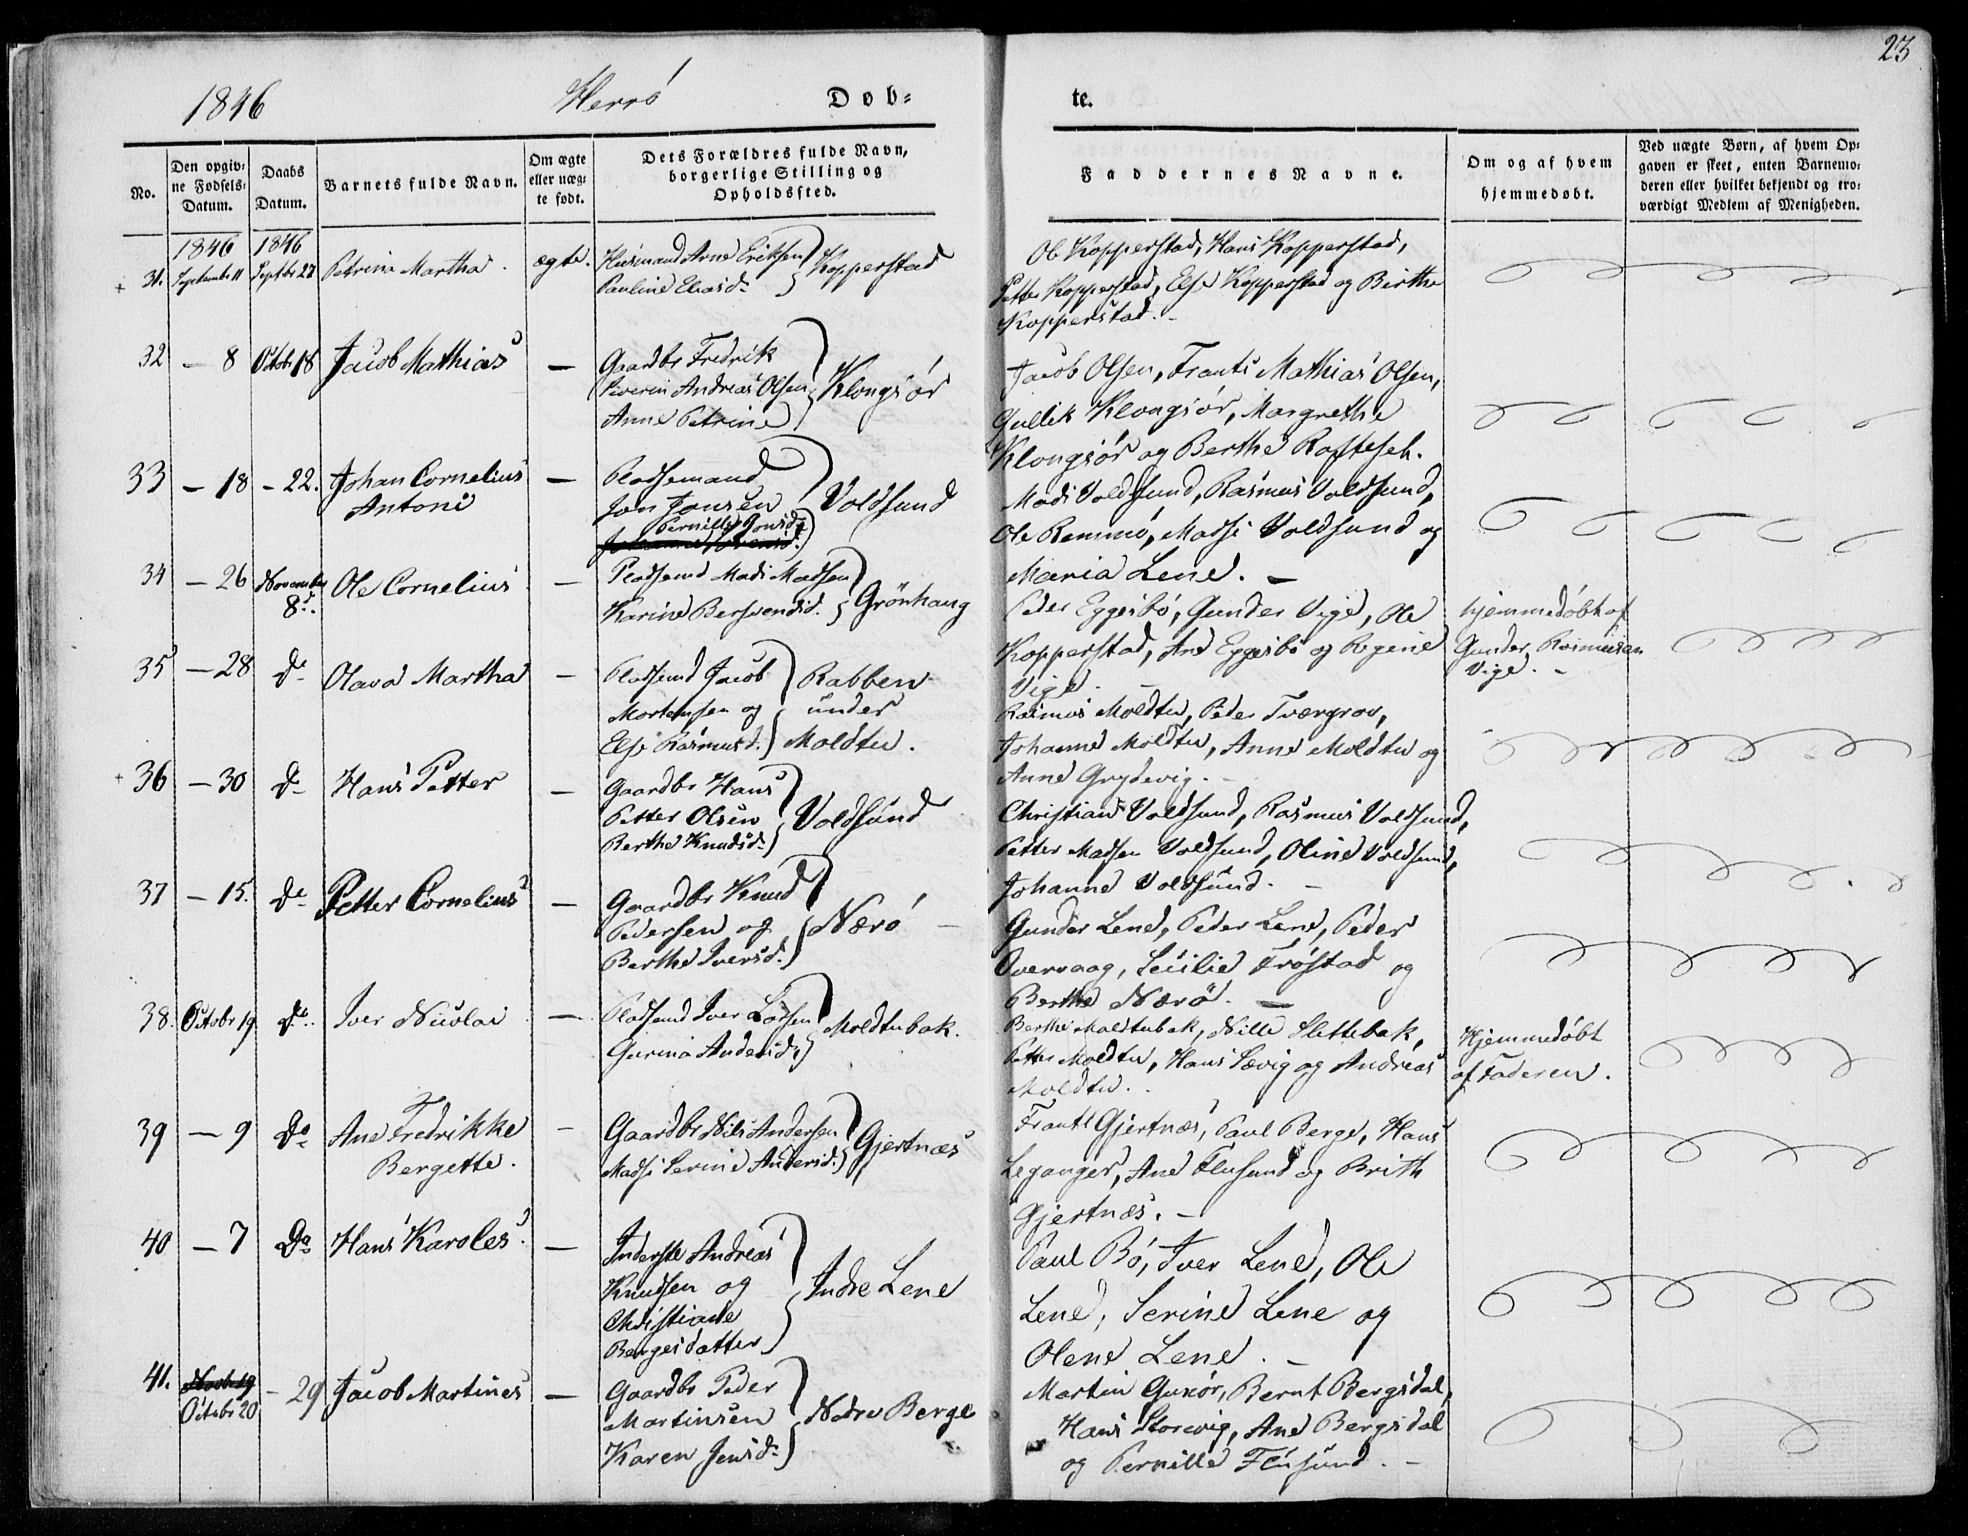 23
1846 Herrö Döb=
te.
No.
Den opgiv=
ne Fødsels=
Datum.
Daabs
Datum.
Barnets fulde Navn.
Om ægte
eller uæg=
te født.
Dets Forældres fulde Navn,
borgerlige Stilling og
Opholdssted.
Faddernes Navne.
Om og af hvem
hjemmedøbt.
Ved uægte Børn, af hvem Op=
gaven er skeet, enten Barnemo=
deren eller hvilket bekjendt og tro=
værdigt Medlem af Menigheden.
1846 1846
31. Septembr 11 Septbr 27 Petrine Martha. ægte. Huusmand Arne Eriksen
Pauline Eliasd. Kopperstad
Ole Kopperstad, Hans Kopperstad,
Petter Kopperstad, Else Kopperstad og Birthe
Kopperstad.
32 — 8 Octobr 18 Jacob Mathias — Gaardbr Fredrik
Severin Andreas Olsen
Anne Petrine Klongsör
Jacob Olsen, Frants Mathias Olsen,
Gullik Klongsör, Margrethe
Klongsör og Berthe
33 — 18 — 22. Johan Cornelius — Pladsemand
Antoni Jon Jonsen Voldsund
Pernille Jonsd.
Mads Voldsund, Rasmus Voldsund,
Ole Remmö, Madsi Voldsund og
Maria Lene. —
34 — 26 November Ole Cornelius — Pladsemd Mads Madsen
8d. Karine Bersvendsd. Grönhaug
Peder Eggesbö, Gunder Vige, Ole
Kopperstad, Ane Eggesbö og Regine
Vige.
hjemmedöbt af
Gunder Rasmusen
Vige. —
35 — 28 do Olava Martha — Pladsemd Jacob
Mortensen og
Else Rasmusd. Rabben
under
Moldtu.
Rasmus Moldtu, Peder Tværgrov,
Johanne Moldtu, Anne Moldtu og
Anne Grydevig. —
36 — 30 do Hans Petter — Gaardbr Hans
Petter Olsen
Berthe Knudsd. Voldsund
Christian Voldsund, Rasmus Voldsund,
Petter Madsen Voldsund, Oline Voldsund,
Johanne Voldsund. —
37 — 15. do Petter Cornelius — Gaardbr Knud
Pedersen og
Berthe Iversd. Nærö —
Gunder Lene, Peder Lene, Peder
Overvaag, Cecilie Fröstad og
Berthe Nærö. —
38. Octobr 19 do. Iver Nicolai — Pladsemd Iver Larsen
Gurina Andersd. Moldtubak.
Berthe Moldtubak, Nille Slettebak,
Petter Moldtu, Hans Sævig og Andreas
Moldtu.
Hjemmedöbt
af Faderen.
39 — 9 Do Ane Fredrikke — Gaardbr Nils Andersen
Bergette. Madsi Serine Andersd. Gjertnæs
Frants Gjertnæs, Paul Berge, Hans
Leganger, Ane Flusund og Brith
Gjertnæs. —
40 — 7 Do Hans Karoles. — Inderste Andreas
Knudsen og
Christiane
Bergesdatter Indre Lene
Paul Bö, Iver Lene, Ole
Lene, Serine Lene og
Olene Lene. —
41. Novbr 19
Octobr 20 — 29 Jacob Martines — Gaardbr Peder
Martinsen
Karen Jensd. Nedre Berge
Martin Gurör, Bernt Bergsdal,
Hans Storevig, Ane Bergsdal
og Pernille Flusund. —